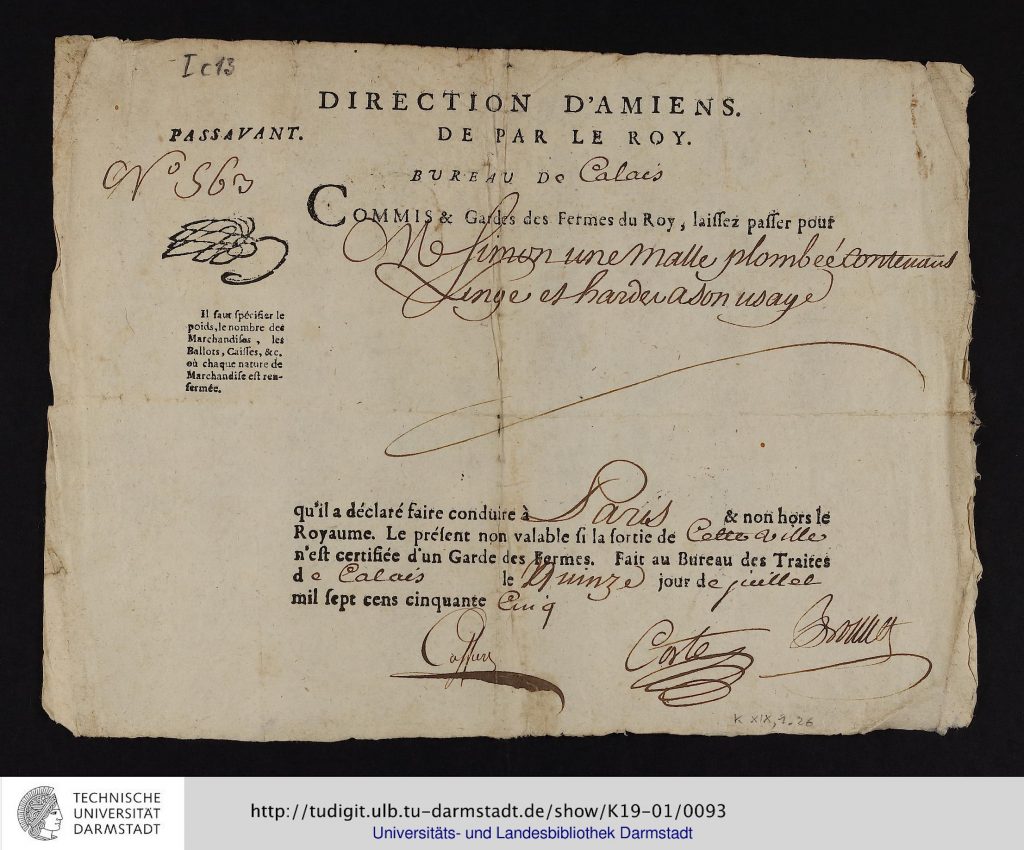 I c 13
DIRECTION D'AMIENS.
PASSAVANT.
DE PAR LE ROY.
N° 563
BUREAU De Calais
COMMIS & Gardes des Fermes du Roy, laissez passer pour
Mr Simon une malle plombeé contenant
Linge et hardes a son usage
Il faut spécifier le
poids, le nombre des
Marchandises, les
Ballots, Caisses, &c.
où chaque nature de
Marchandise est ren-
fermée.
qu'il a déclaré faire conduire à Paris & non hors le
Royaume. Le présent non valable si la sortie de Cette ville
n'est certifiée d'un Garde des Fermes. Fait au Bureau des Traites
de Calais le Quinze jour de juillet
mil sept cens cinquante Cinq
Corte
K XIX, 1. 26
TECHNISCHE
UNIVERSITÄT
DARMSTADT
http://tudigit.ulb.tu-darmstadt.de/show/K19-01/0093
Universitäts- und Landesbibliothek Darmstadt